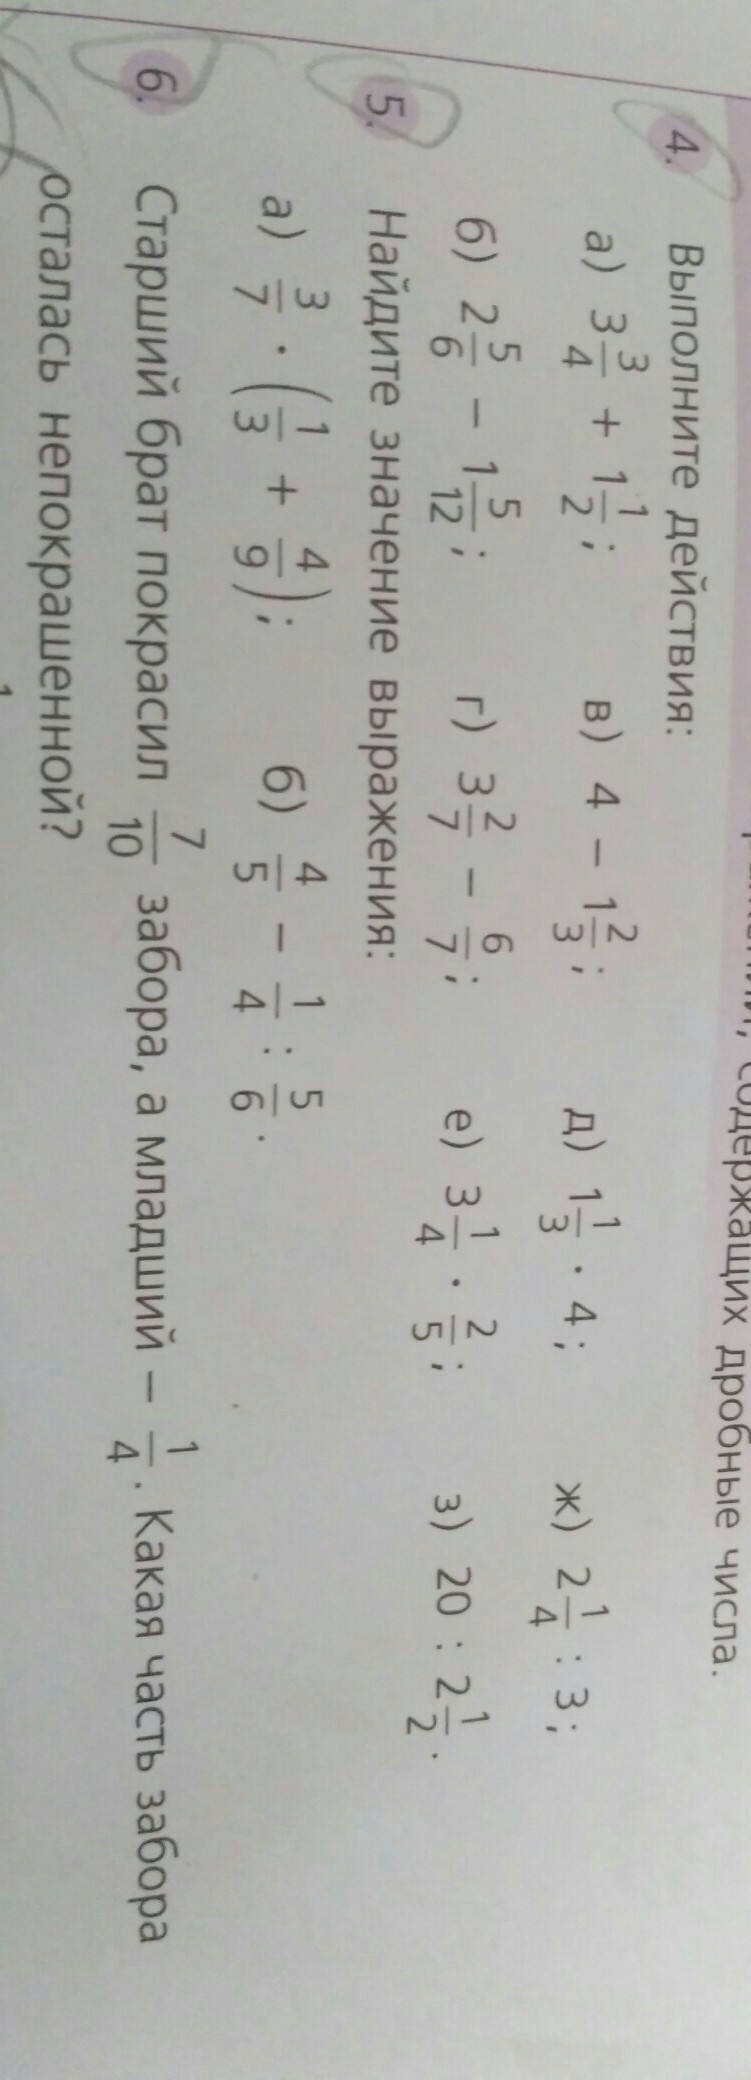 содержащих дробные числа.
4. Выполните действия:
а) 3 3/4 + 1 1/2; в) 4 − 1 2/3; д) 1 1/3 · 4; ж) 2 1/4 : 3;
б) 2 5/6 − 1 5/12; г) 3 2/7 − 6/7; е) 3 1/4 · 2/5; з) 20 : 2 1/2.
5. Найдите значение выражения:
а) 3/7 · (1/3 + 4/9); б) 4/5 − 1/4 : 5/6.
6. Старший брат покрасил 7/10 забора, а младший – 1/4. Какая часть забора
осталась непокрашенной?
1